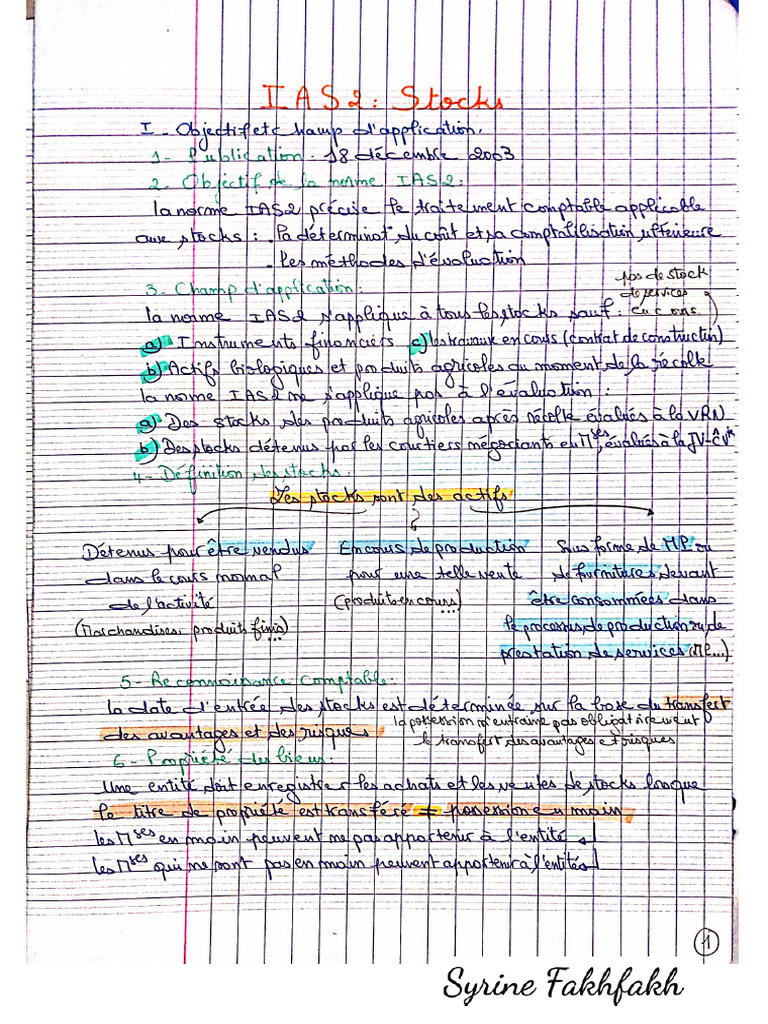 IAS2: Stocks
I - Objectif et champ d'application.
1- Publication. 18 décembre 2003
2. Objectif de la norme IAS2:
la norme IAS2 précise le traitement comptable applicable
aux stocks : . la déterminat° du coût et sa comptabilisation ultérieure
. les méthodes d'évaluation
3. Champ d'application:
pas de stock
de services
la norme IAS2 s'applique à tous les stocks sauf: en cours
a) Instruments financiers c) les travaux en cours (contrat de construction)
b) Actifs biologiques et produits agricoles au moment de la récolte
la norme IAS2 ne s'applique pas à l'évaluation :
a) Des stocks des produits agricoles après récolte évalués à la VRN
b) Des stocks détenus par les courtiers négociants en Mses, évalués à la JV-CV
4- Définition des stocks.
Les stocks sont des actifs
Détenus pour être vendus En cours de production Sous forme de MP ou
dans le cours normal pour une telle vente de fournitures devant
de l'activité (produits en cours) être consommées dans
le processus de production ou de
(Marchandises, produits finis) prestation de services (MP...)
5- Reconnaissance Comptable:
la date d'entrée des stocks est déterminée sur la base du transfert
des avantages et des risques la possession n'entraine pas obligatoirement
le transfert des avantages et risques
6- Propriété des biens:
Une entité doit enregistrer les achats et les ventes de stocks lorsque
le titre de propriété est transféré ≠ possession en main
les Mses en main peuvent ne pas appartenir à l'entité
les Mses qui ne sont pas en main peuvent appartenir à l'entité
1
Syrine Fakhfakh